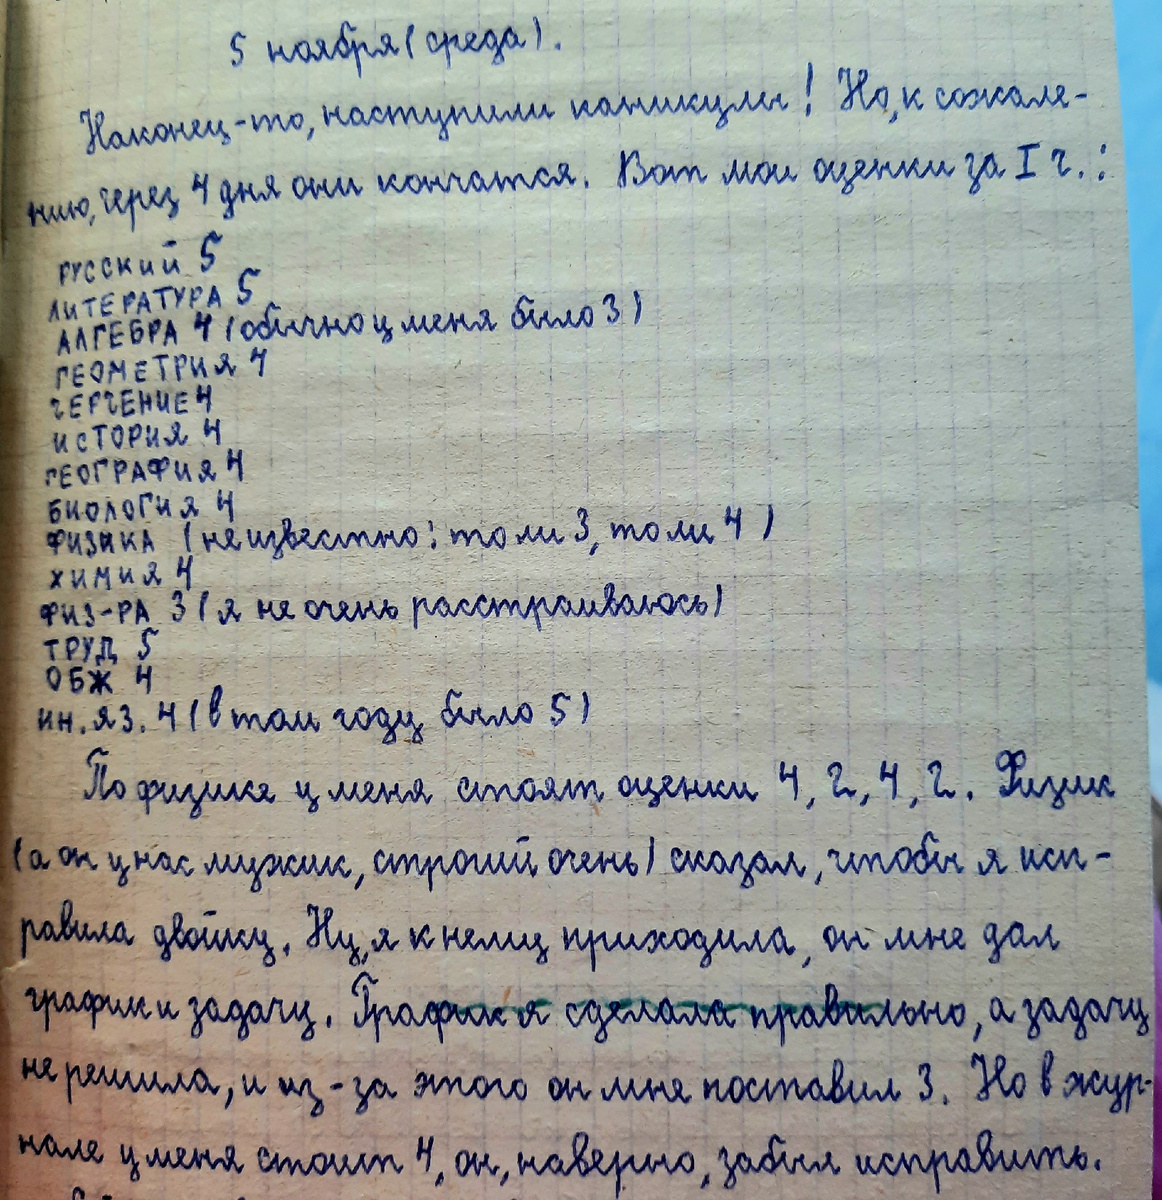 5 ноября (среда).
Наконец-то, наступили каникулы! Но, к сожале-
нию, через 4 дня они кончатся. Вот мои оценки за I ч.:
РУССКИЙ 5
ЛИТЕРАТУРА 5
АЛГЕБРА 4 (обычно у меня было 3)
ГЕОМЕТРИЯ 4
ЧЕРЧЕНИЕ 4
ИСТОРИЯ 4
ГЕОГРАФИЯ 4
БИОЛОГИЯ 4
ФИЗИКА (неизвестно: то ли 3, то ли 4)
ХИМИЯ 4
ФИЗ-РА 3 (я не очень расстраиваюсь)
ТРУД 5
ОБЖ 4
ИН. ЯЗ. 4 (в том году было 5)
По физике у меня стоят оценки 4, 2, 4, 2. Физик
(а он у нас мужик, строгий очень) сказал, чтобы я исп-
равила двойку. Ну, я к нему приходила, он мне дал
график и задачу. График я сделала правильно, а задачу
не решила, и из-за этого он мне поставил 3. Но в жур-
нале у меня стоит 4, он, наверно, забыл исправить.